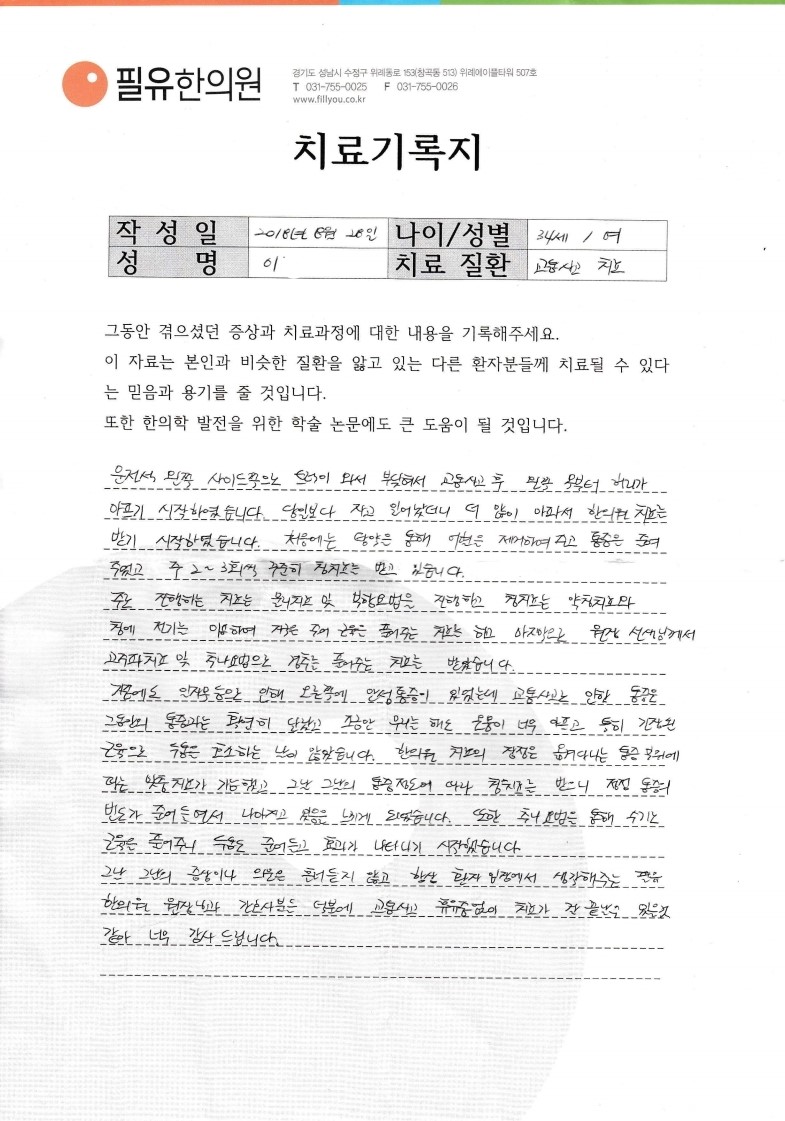 필유한의원
경기도 성남시 수정구 위례동로 153(창곡동 513) 위례에이플타워 507호
T 031-755-0025 F 031-755-0026
www.fillyou.co.kr
치료기록지
작 성 일 2018년 8월 28일 나이/성별 34세 / 여
성 명 이 치료 질환 교통사고 치료
그동안 겪으셨던 증상과 치료과정에 대한 내용을 기록해주세요.
이 자료는 본인과 비슷한 질환을 앓고 있는 다른 환자분들께 치료될 수 있다
는 믿음과 용기를 줄 것입니다.
또한 한의학 발전을 위한 학술 논문에도 큰 도움이 될 것입니다.
운전석 왼쪽 사이드쪽으로 트럭이 와서 부딪혀서 교통사고 후 왼쪽 목부터 허리가
아프기 시작하였습니다. 당일보다 자고 일어났더니 더 많이 아파서 한의원 치료를
받기 시작하였습니다. 처음에는 당약을 통해 어혈을 제거하여 주고 통증을 줄여
주었고 주 2~3회씩 꾸준히 침치료를 받고 있습니다.
주로 진행하는 치료는 물리치료 및 부항요법을 진행하고 침치료는 약침치료와
침에 전기를 이용하여 자극을 주어 근육을 풀어주는 치료를 하고 마지막으로 원장 선생님께서
고주파치료 및 추나요법으로 경추를 풀어주는 치료를 받았습니다.
기존에도 인해 오른쪽에 만성통증이 있었는데 교통사고로 인한 통증은
그동안의 통증과는 확연히 달랐고 조금만 무리를 해도 온몸이 너무 아프고 특히 긴장된
근육으로 두통을 호소하는 날이 많았습니다. 한의원 치료의 장점은 옮겨다니는 통증 부위에
따른 맞춤치료가 가능했고 그날 그날의 통증정도에 따라 침치료를 받으니 점점 통증의
빈도가 줄어들면서 나아지고 있음을 느끼게 되었습니다. 또한 추나요법을 통해 수기로
근육을 풀어주니 두통도 줄어들고 효과가 나타나기 시작했습니다.
그날 그날의 증상이나 의문을 흘려듣지 않고 항상 환자 입장에서 생각해주는 필유
한의원 원장님과 간호사분들 덕분에 교통사고 후유증없이 치료가 잘 끝날수 있을것
같아 너무 감사 드립니다.